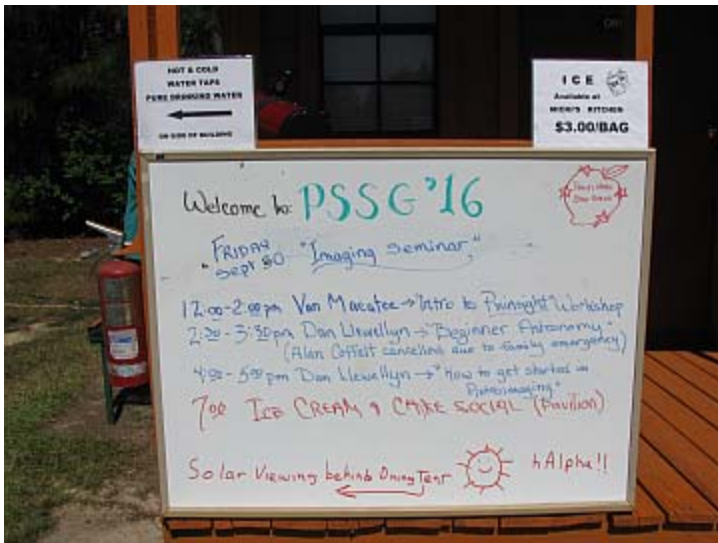 HOT & COLD
WATER TAPS
PURE DRINKING WATER
ON SIDE OF BUILDING
ICE
Available at
KITCHEN
$3.00/BAG
Welcome to: PSSG '16
FRIDAY
Sept 30
"Imaging Seminar"
12:00-2:00 pm Van Macatee → "Intro to Pixinsight" Workshop
2:30 - 3:30 pm Dan Llewellyn → "Beginner Astronomy"
(Alan Coffelt cancelled due to family emergency)
4:00 - 5:00 pm Dan Llewellyn → "How to get started in
Astroimaging"
7:00 ICE CREAM & CAKE SOCIAL (Pavilion)
Solar Viewing behind Dining Tent
hAlpha!!